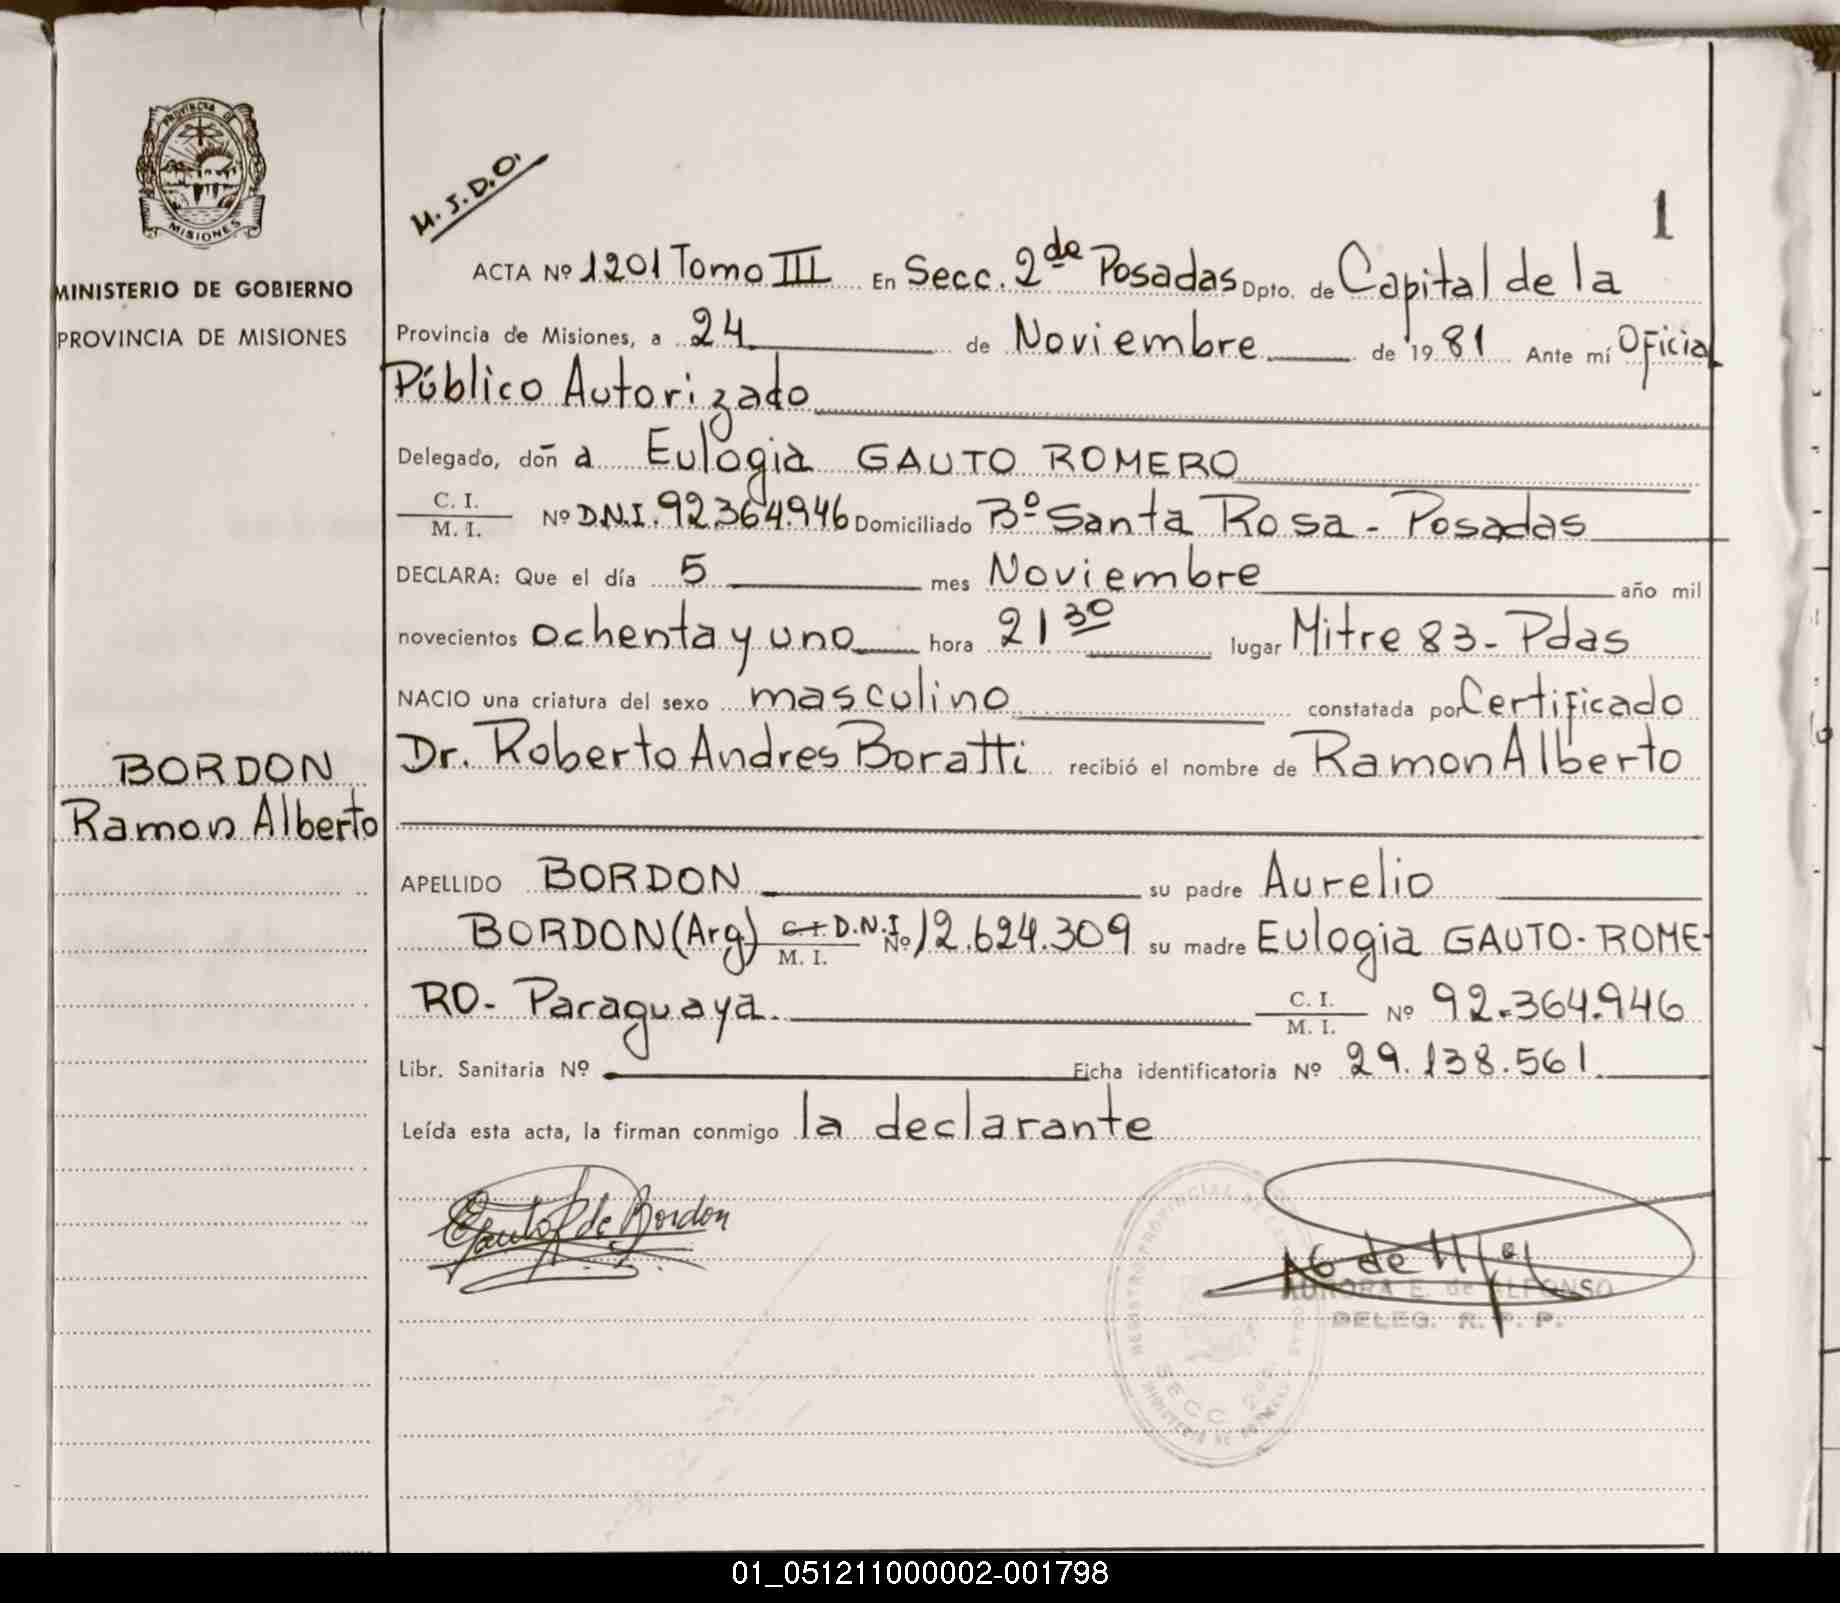 PROVINCIA DE
MISIONES
MINISTERIO DE GOBIERNO
PROVINCIA DE MISIONES
BORDON
Ramon Alberto
M.J.D.O.
1
ACTA Nº 1201 Tomo III En Secc. 2da Posadas Dpto. de Capital de la
Provincia de Misiones, a 24 de Noviembre de 1981 Ante mí Oficial
Público Autorizado
Delegado, doña Eulogia GAUTO ROMERO
C. I.
M. I. Nº D.N.I. 92.364.946 Domiciliado Bº Santa Rosa - Posadas
DECLARA: Que el día 5 mes Noviembre año mil
novecientos ochenta y uno hora 21 30 lugar Mitre 83 - Pdas
NACIO una criatura del sexo masculino constatada por Certificado
Dr. Roberto Andres Boratti recibió el nombre de Ramon Alberto
APELLIDO BORDON su padre Aurelio
BORDON (Arg) C.I. D.N.I. M. I. Nº 12.624.309 su madre Eulogia GAUTO-ROME-
RO- Paraguaya. C. I. M. I. Nº 92.364.946
Libr. Sanitaria Nº Ficha identificatoria Nº 29.138.561.
Leída esta acta, la firman conmigo la declarante
Gauto de Bordon
AURORA E. de ALFONSO
DELEG. R. P. P.
REGISTRO PROVINCIAL DE LAS
SECC 2da
MINISTERIO DE GOBIERNO
01_051211000002-001798